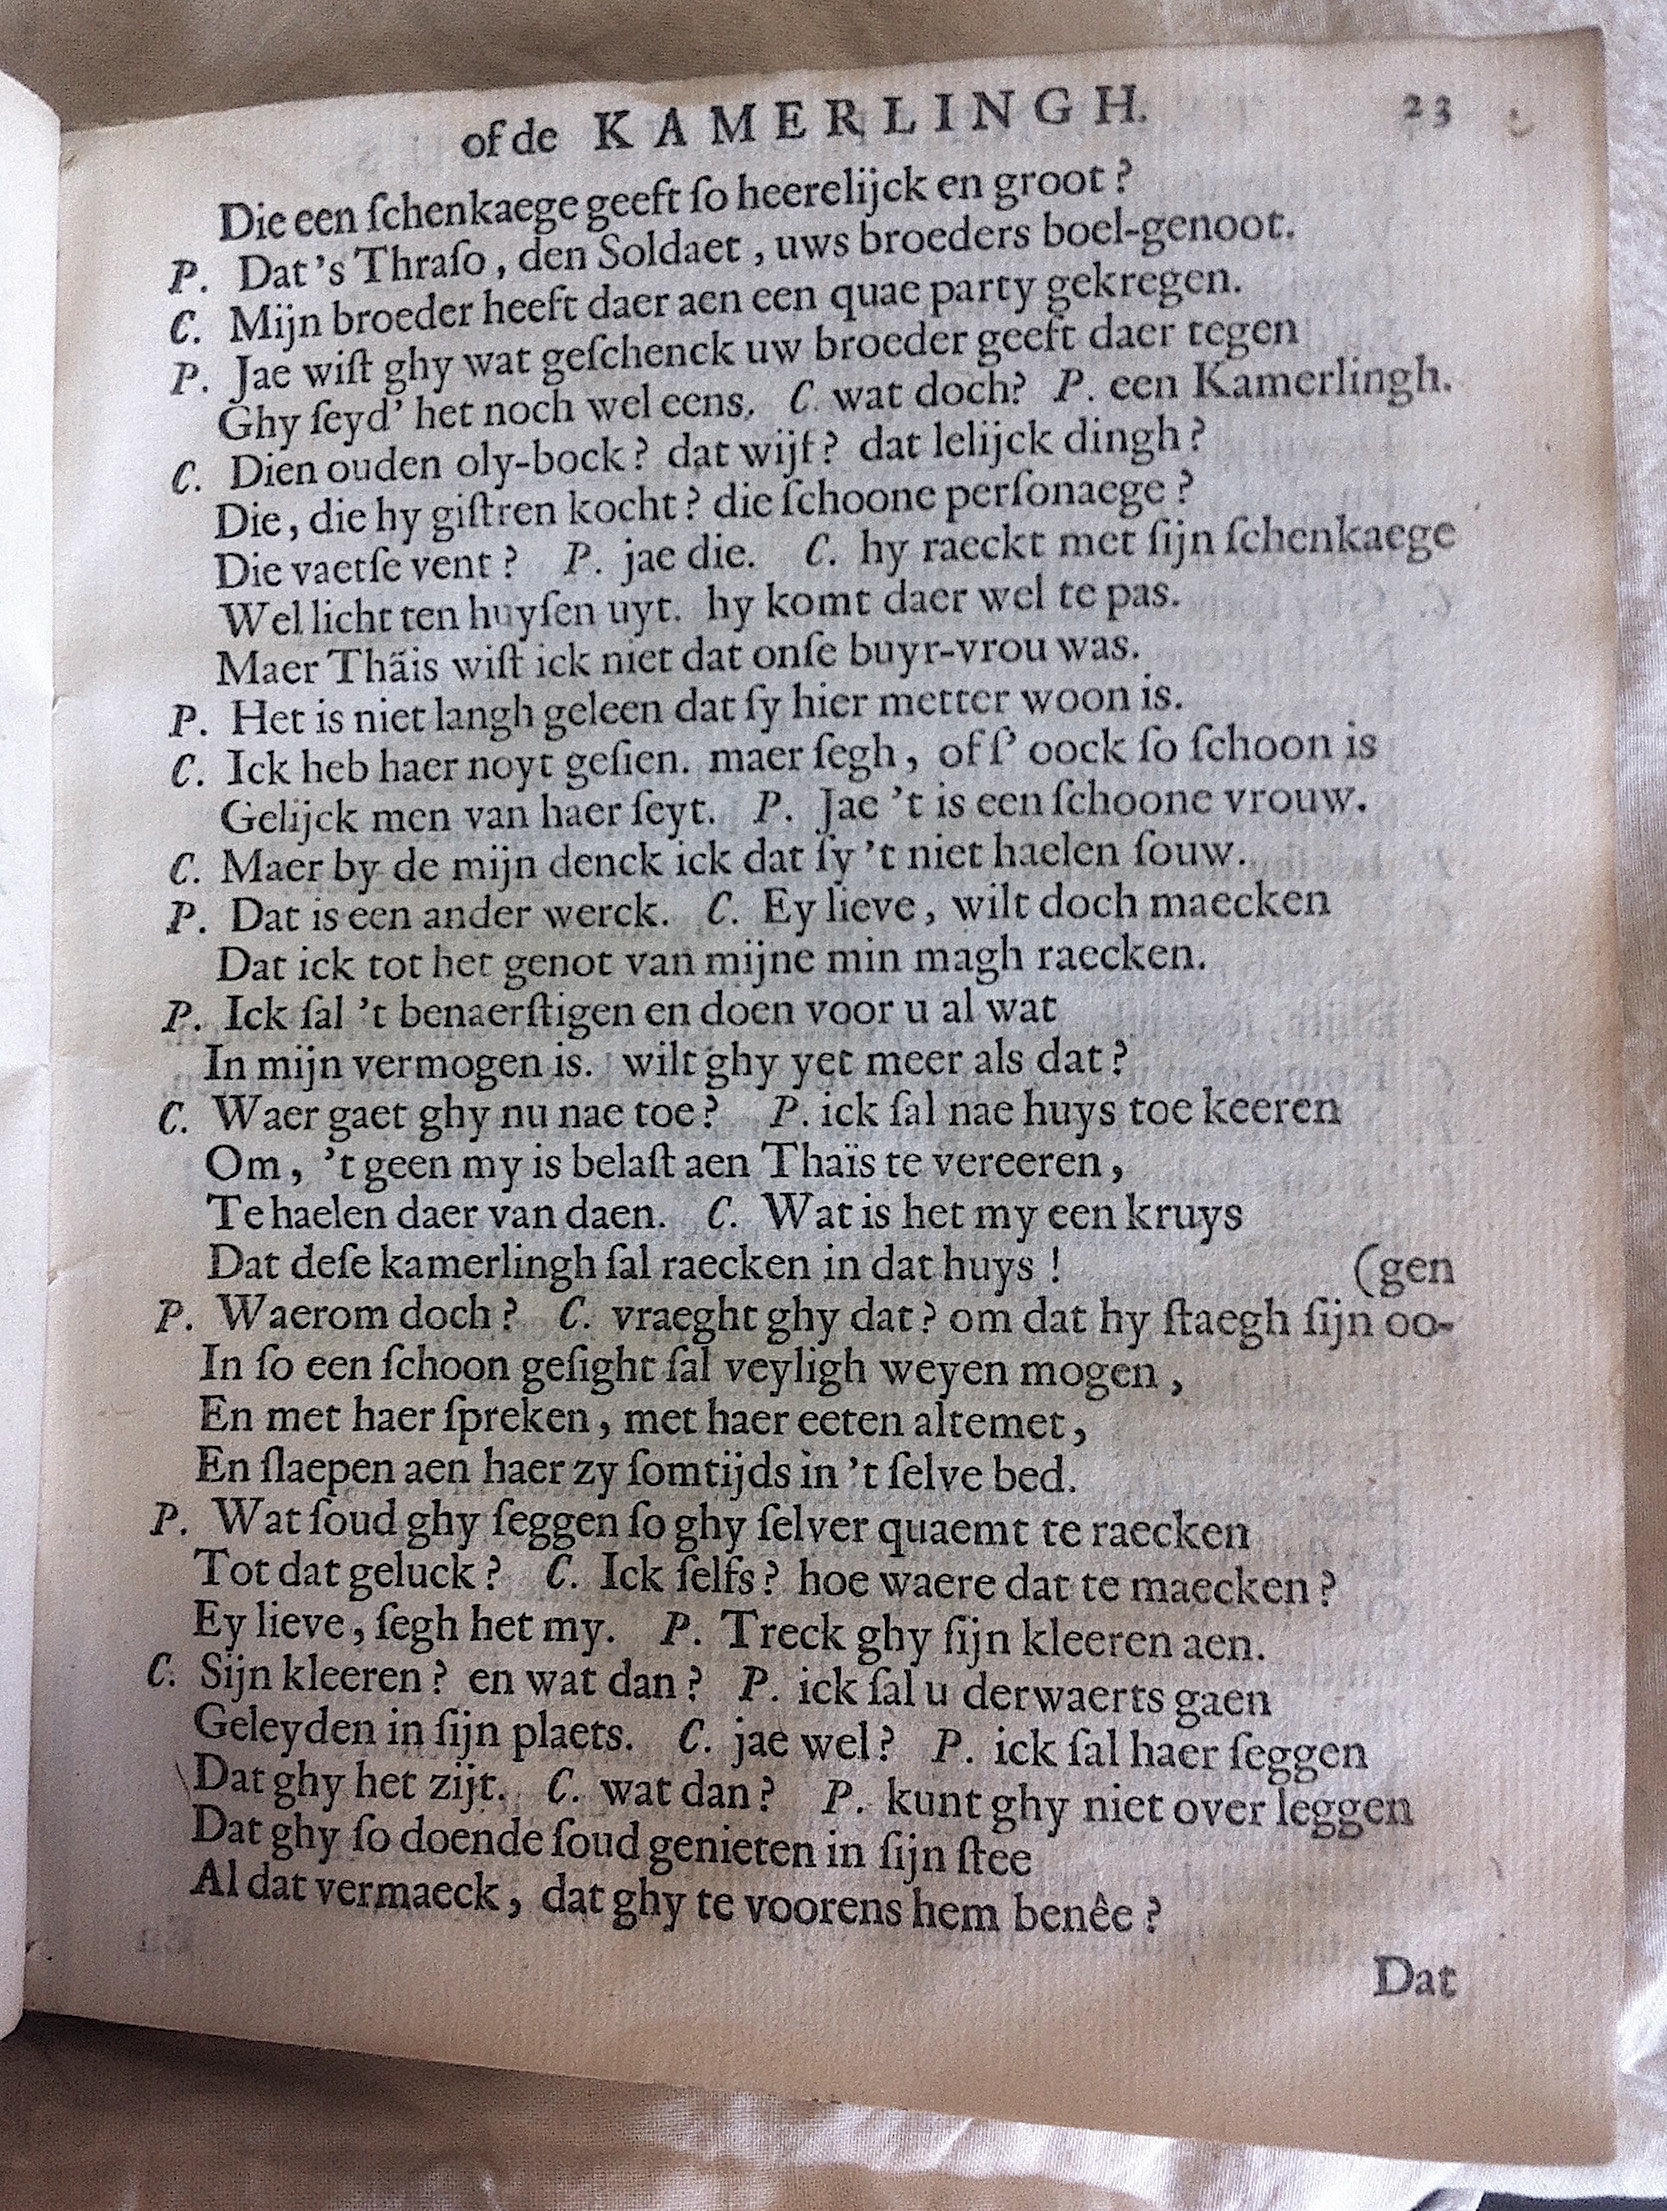 of de KAMERLINGH. 23
Die een ſchenkaege geeft ſo heerelijck en groot?
P. Dat's Thraſo, den Soldaet, uws broeders boel-genoot.
C. Mijn broeder heeft daer aen een quae party gekregen.
P. Jae wiſt ghy wat geſchenck uw broeder geeft daer tegen
Ghy ſeyd' het noch wel eens. C. wat doch? P. een Kamerlingh.
C. Dien ouden oly-bock? dat wijf? dat lelijck dingh?
Die, die hy giſtren kocht? die ſchoone perſonaege?
Die vaetſe vent? P. jae die. C. hy raeckt met ſijn ſchenkaege
Wel licht ten huyſen uyt. hy komt daer wel te pas.
Maer Thäis wiſt ick niet dat onſe buyr-vrou was.
P. Het is niet langh geleen dat ſy hier metter woon is.
C. Ick heb haer noyt geſien. maer ſegh, of ſ' oock ſo ſchoon is
Gelijck men van haer ſeyt. P. Jae 't is een ſchoone vrouw.
C. Maer by de mijn denck ick dat ſy 't niet haelen ſouw.
P. Dat is een ander werck. C. Ey lieve, wilt doch maecken
Dat ick tot het genot van mijne min magh raecken.
P. Ick ſal 't benaerſtigen en doen voor u al wat
In mijn vermogen is. wilt ghy yet meer als dat?
C. Waer gaet ghy nu nae toe? P. ick ſal nae huys toe keeren
Om, 't geen my is belaſt aen Thaïs te vereeren,
Te haelen daer van daen. C. Wat is het my een kruys
Dat deſe kamerlingh ſal raecken in dat huys! (gen
P. Waerom doch? C. vraeght ghy dat? om dat hy ſtaegh ſijn oo-
In ſo een ſchoon geſight ſal veyligh weyen mogen,
En met haer ſpreken, met haer eeten altemet,
En ſlaepen aen haer zy ſomtijds in 't ſelve bed.
P. Wat ſoud ghy ſeggen ſo ghy ſelver quaemt te raecken
Tot dat geluck? C. Ick ſelfs? hoe waere dat te maecken?
Ey lieve, ſegh het my. P. Treck ghy ſijn kleeren aen.
C. Sijn kleeren? en wat dan? P. ick ſal u derwaerts gaen
Geleyden in ſijn plaets. C. jae wel? P. ick ſal haer ſeggen
Dat ghy het zijt. C. wat dan? P. kunt ghy niet over leggen
Dat ghy ſo doende ſoud genieten in ſijn ſtee
Al dat vermaeck, dat ghy te voorens hem benêe?
Dat